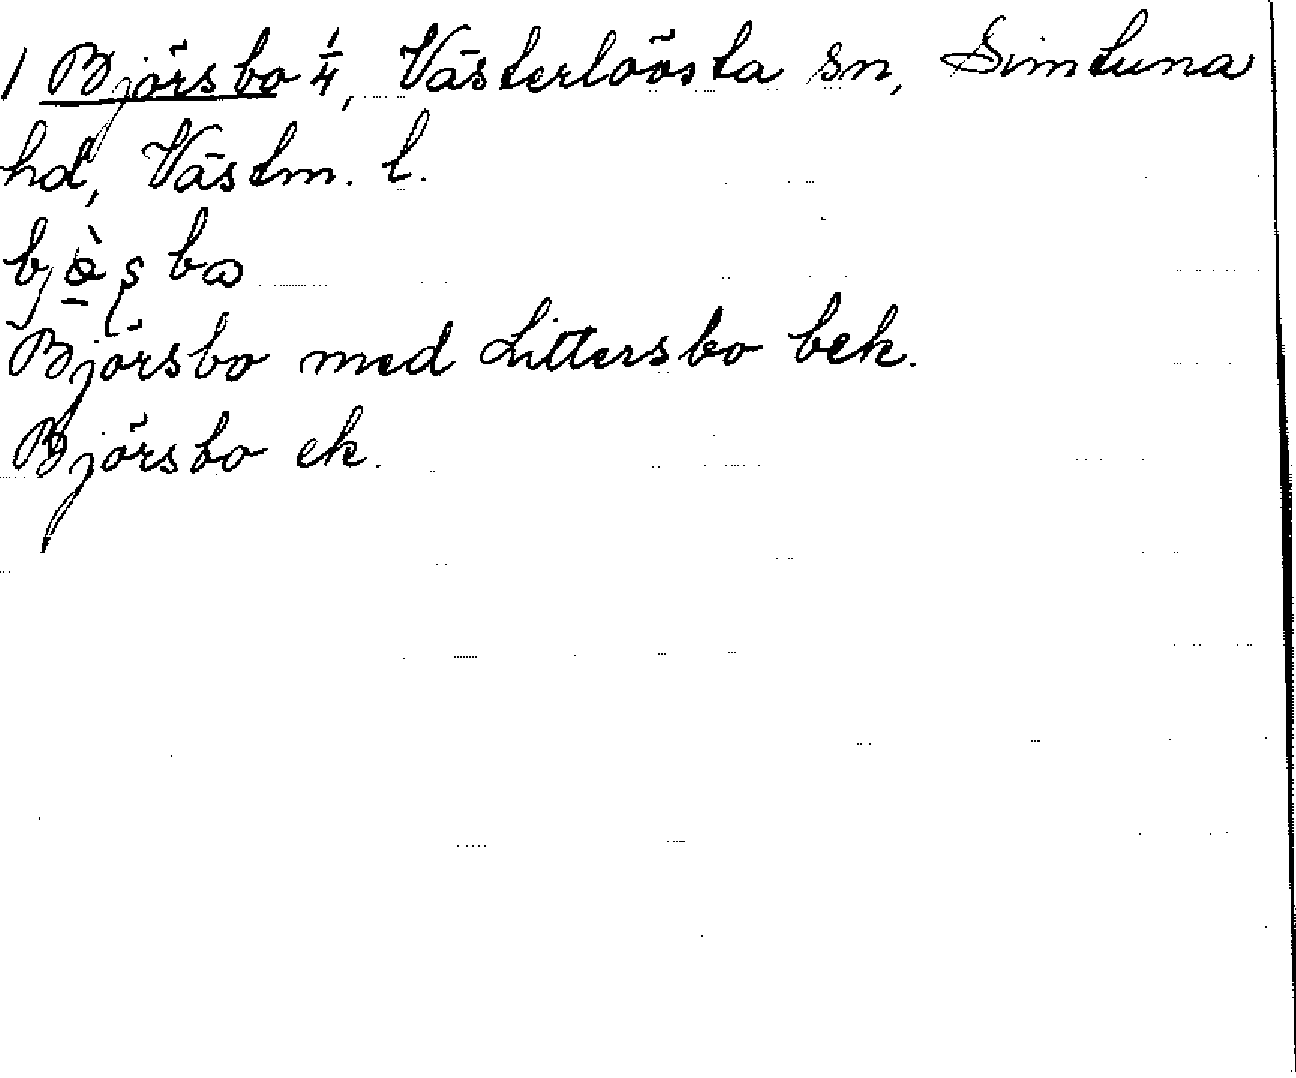 1 Björsbo 1/4, Västerlöösta sn, Simtuna
hd, Västm. l.
Björsbo med Littersbo bek.
Björsbo ek.